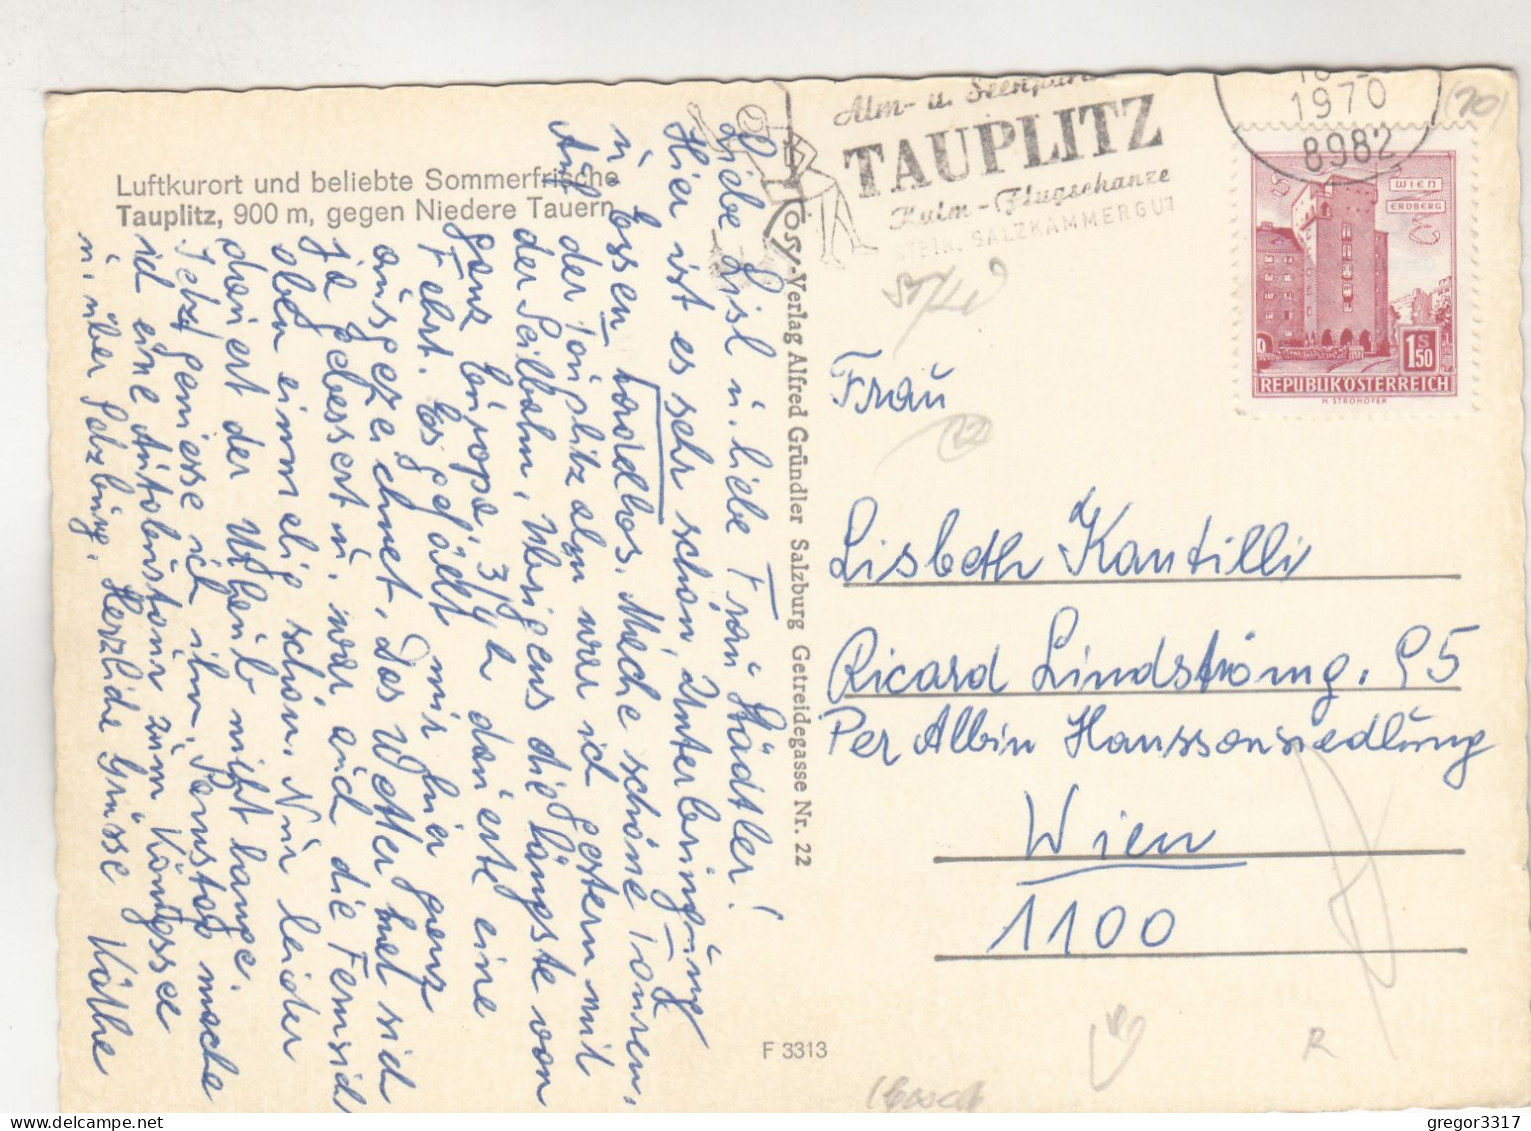 Luftkurort und beliebte Sommerfrische
Tauplitz, 900 m, gegen Niedere Tauern
Liebe Lisl u. liebe Frau Städtler!
Hier ist es sehr schön, Unterbringung
u. Essen tadellos. Mache schöne Touren,
Auf der Tauplitzalm war ich gestern mit
der Seilbahn, Übrigens die längste von
ganz Europa, 3/4 h dauerte eine
Fahrt. Es gefällt mir hier ganz
ausgezeichnet. Das Wetter hat sich
ja gebessert u. war auch die Fernsicht
oben einmalig schön. Nur leider
dauert der Urlaub nicht lange.
Jetzt geniesse ich ihn. Samstag mache
ich eine Autobustour zum Königssee
u. über Salzburg. Herzliche Grüsse Käthe
Cosy-Verlag Alfred Gründler Salzburg Getreidegasse Nr. 22
F 3313
Alm- u.
TAUPLITZ
Kulm-Flugschanze
SALZKAMMERGUT
1970
8982
(70)
WIEN
ERDBERG
1S50
REPUBLIK ÖSTERREICH
H. STROHOFER
Frau
Lisbeth Kantilli
Ricard Lindströmg. 95
Per Albin Hanssonsiedlung
Wien
1100
R
gregor3317